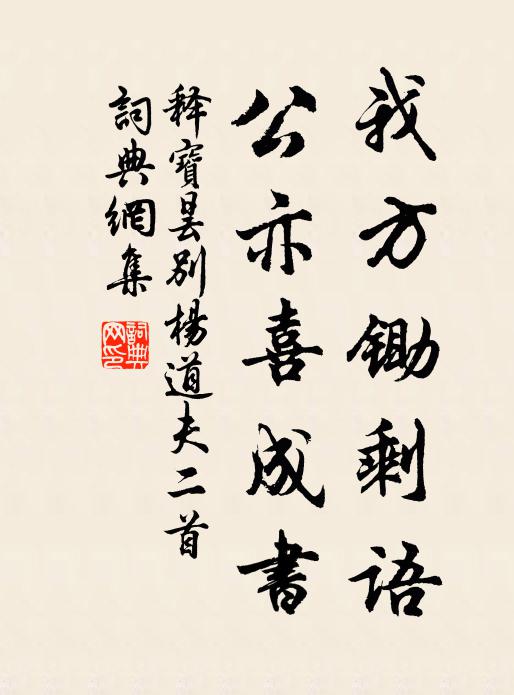 我方锄剩语
公亦喜成書
释寶昙别楊道夫二首
詞典網集
詞典網印